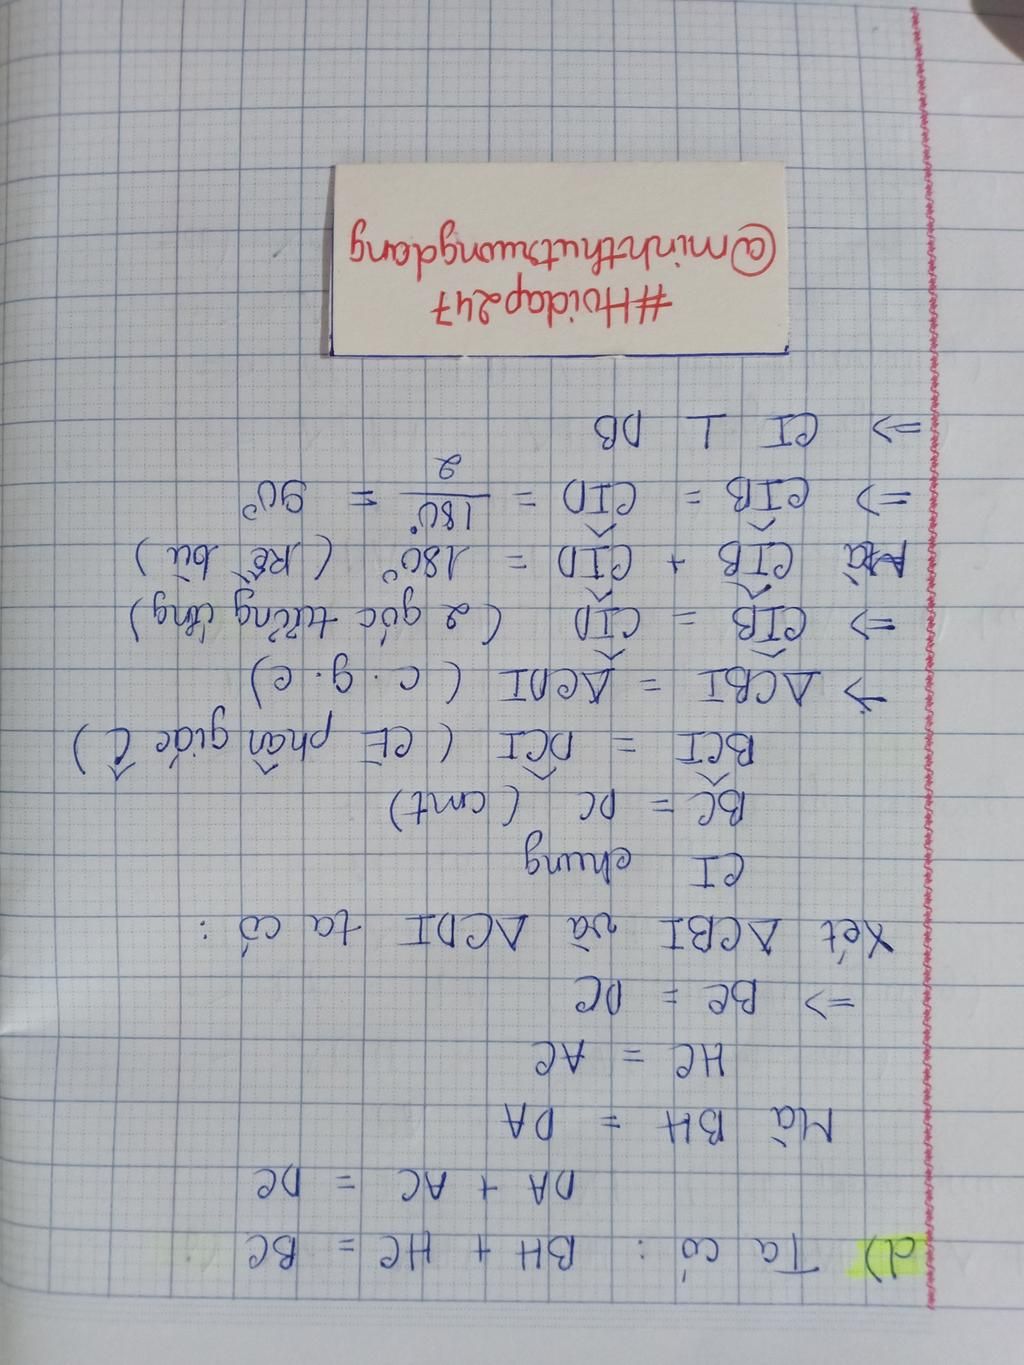 d) Ta có : BH + HC = BC
DA + AC = DC
Mà BH = DA
HC = AC
=> BC = DC
Xét ΔCBI và ΔCDI ta có :
CI chung
BC = DC (cmt)
BĈI = DĈI (CE phân giác Ĉ)
=> ΔCBI = ΔCDI (c.g.c)
=> CÎB = CÎD (2 góc tương ứng)
Mà CÎB + CÎD = 180° (kề bù)
=> CÎB = CÎD = 180°/2 = 90°
=> CI ⊥ DB
#Hoidap247
@minhthutruongdang